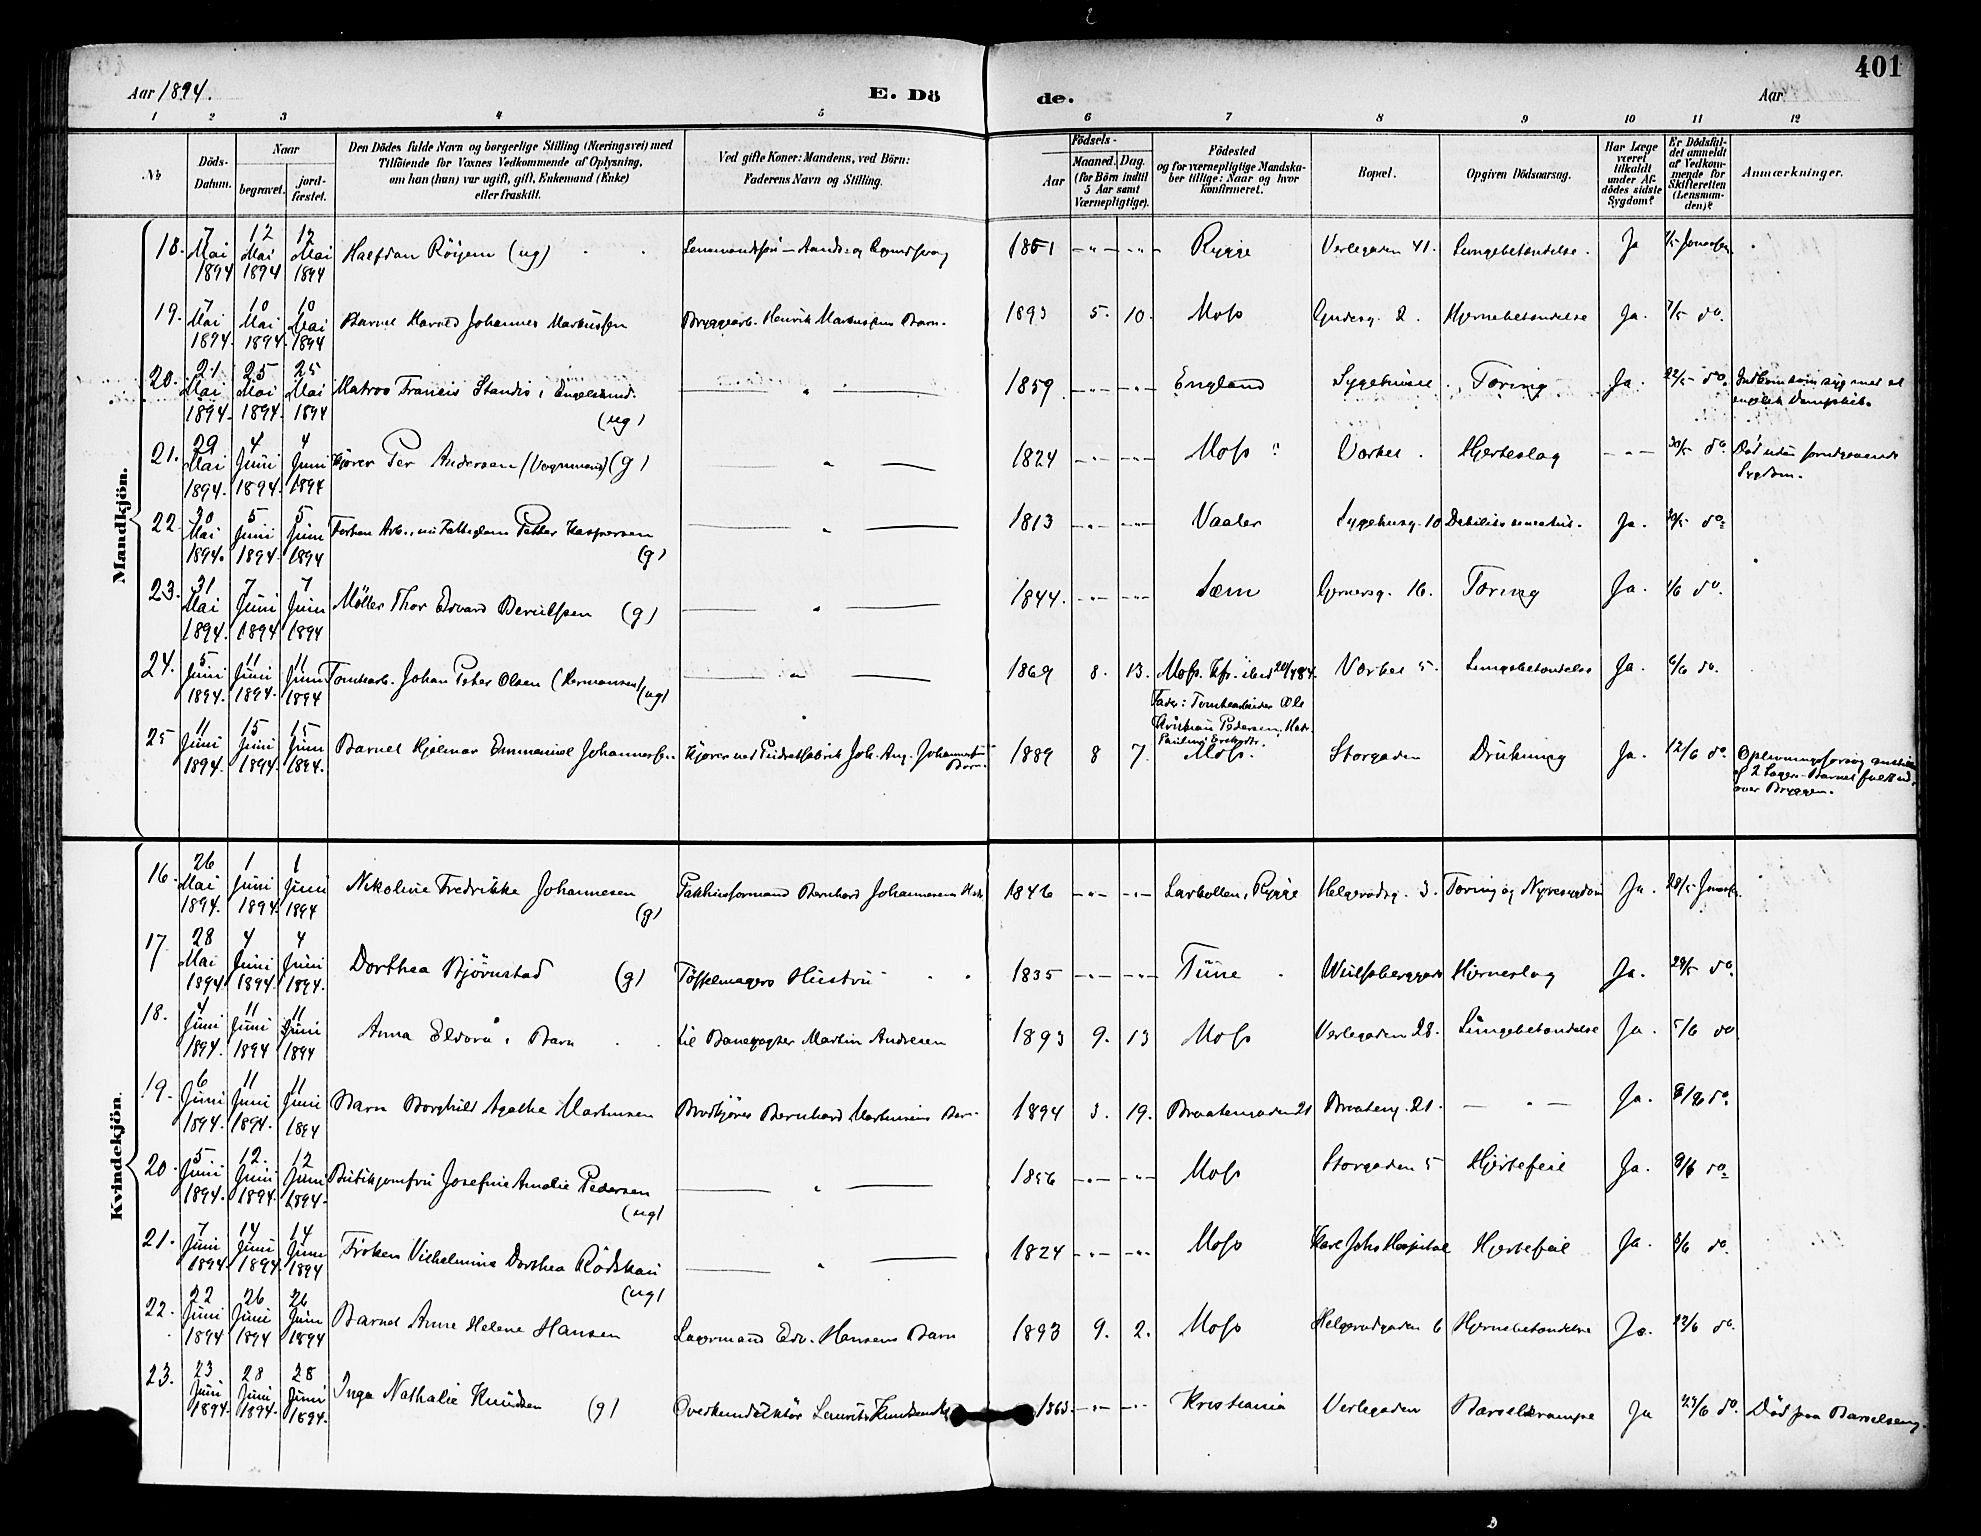 401
Aar 1894. E. Dö
de. Aar
1 2 3 4 5 6 7 8 9 10 11 12
№
Döds-
Datum.
Naar
begravet.
jord-
fæstet.
Den Dödes fulde Navn og borgerlige Stilling (Næringsvei) med
Tilföiende for Voxnes Vedkommende af Oplysning,
om han (hun) var ugift, gift, Enkemand (Enke)
eller fraskilt.
Ved gifte Koner: Mandens, ved Börn:
Faderens Navn og Stilling.
Födsels-
Aar
Maaned. Dag.
(for Börn indtil
5 Aar samt
Værnepligtige).
Födested
og for værnepligtige Mandska-
ber tillige: Naar og hvor
konfirmeret.
Bopæl.
Opgiven Dödsaarsag.
Har Læge
været
tilkaldt
under Af-
dödes sidste
Sygdom?
Er Dödsfal-
det anmeldt
af Vedkom-
mende for
Skifteretten
(Lensman-
den)?
Anmærkninger.
Mandkjön.
18. 7 Mai 1894 12 Mai 1894 12 Mai 1894 Halfdan Röyem (ug) 1851 Rygge Verlegaden 41. Lungebetændelse. Ja
19. 7 Mai 1894 10 Mai 1894 10 Mai 1894 Barnet Harald Johannes Markussen Bryggearb. Henrik Markussens Barn. 1893 5. 10. Moss Gudesg. 2. Hjernebetændelse Ja. 7/5 do.
20. 21 Mai 1894. 25 Mai 1894. 25 Mai 1894 Matros Francis Standis, Engelsmand.
(ug) 1859 England Sygehuset Tæring Ja. 22/5 do. Indkom syg med et
engelsk Dampskib.
21. 29 Mai 1894. 4 Juni 1894. 4 Juni 1894 Kjører Per Andersen (Vognmand) (g) 1824 Moss Værket. Hjerteslag 30/5 do. Död uden forudgaaende
Sygdom.
22. 30 Mai 1894. 5 Juni 1894. 5 Juni 1894 Forhen Arb., nu Fattiglem Petter Kaspersen
(g) 1813 Vaaler Sygehusg. 10 Debilitas senectus. Ja. 30/5 do.
23. 31 Mai 1894. 7 Juni 1894 7 Juni 1894 Möller Thor Edvard Berulfsen (g) 1844. Sæm Gernersg. 16. Tæring Ja. 1/6 do.
24. 5 Juni 1894. 11 Juni 1894. 11 Juni 1894 Tomtearb. Johan Peter Olsen (Hermansen) (ug) 1869 8. 13. Moss. Kfr. ibid 20/4 84.
Fader: Tomtearbeider Ole
Kristian Pedersen, Moder
Værket 5. Lungebetændelse Ja. 6/6 do.
25 11 Juni 1894. 15 Juni 1894. 15 Juni 1894. Barnet Hjelmar Emmanuel Johannessen. Kjører ved Joh. Aug. Johannesens
Barn. 1889 8 7. Moss. Storgaden Drukning Ja. 12/6 do. Oplivningsforsøg anstillet
af 2 Læger. Barnet faldt ud
over Bryggen.
Kvindekjön.
16. 26 Mai 1894. 1 Juni 1894. 1 Juni 1894 Nikoline Fredrikke Johannesen
(g) Pakhusformand Bernhard Johannesens Hustr. 1846 Larkollen, Rygge Helgerødg. 3. Tæring og Nyresygdom Ja. 28/5
17 28 Mai 1894 4 Juni 1894. 4 Juni 1894. Dorthea Bjørnstad (g) Tøffelmagers Hustru 1835 Tune Wulfsberggade Hjerneslag Ja. 29/5 do.
18. 4 Juni 1894. 11 Juni 1894 11 Juni 1894 Anna Eldora, Barn til Banevogter Martin Andresen 1893 9. 13 Moss Verlegaden 28. Lungebetændelse Ja. 5/6 do
19. 6 Juni 1894. 11 Juni 1894. 11 Juni 1894 Barn Borghild Agathe Martinsen Brødkjører Bernhard Martinsens Barn 1894 3. 19. Braatengaden 21 Braateng. 21. Ja. 8/6 do.
20. 5 Juni 1894. 12. Juni 1894. 12 Juni 1894. Butikjomfru Josefine Amalie Pedersen
(ug) 1856 Moss Storgaden 5 Hjertefeil Ja. 8/6 do.
21. 7 Juni 1894. 14 Juni 1894 14 Juni 1894 Frøken Vilhelmine Dorthea Rödskau
(ug) 1824 Moss Karl Johs Hospital Hjertefeil Ja. 8/6 do.
22. 22 Juni 1894 26 Juni 1894 26 Juni 1894 Barnet Anne Helene Hansen Lagermand Edv. Hansens Barn 1893 9. 2. Moss Helgerødgaden 6 Hjernebetændelse Ja. do.
23. 23 Juni 1894. 28 Juni 1894. 28 Juni 1894. Inga Nathalie Knudsen (g) Overkonduktör Laurits Knudsens 1863. Kristiania Verlegaden Barselkrampe Ja do. Död paa Barselseng.